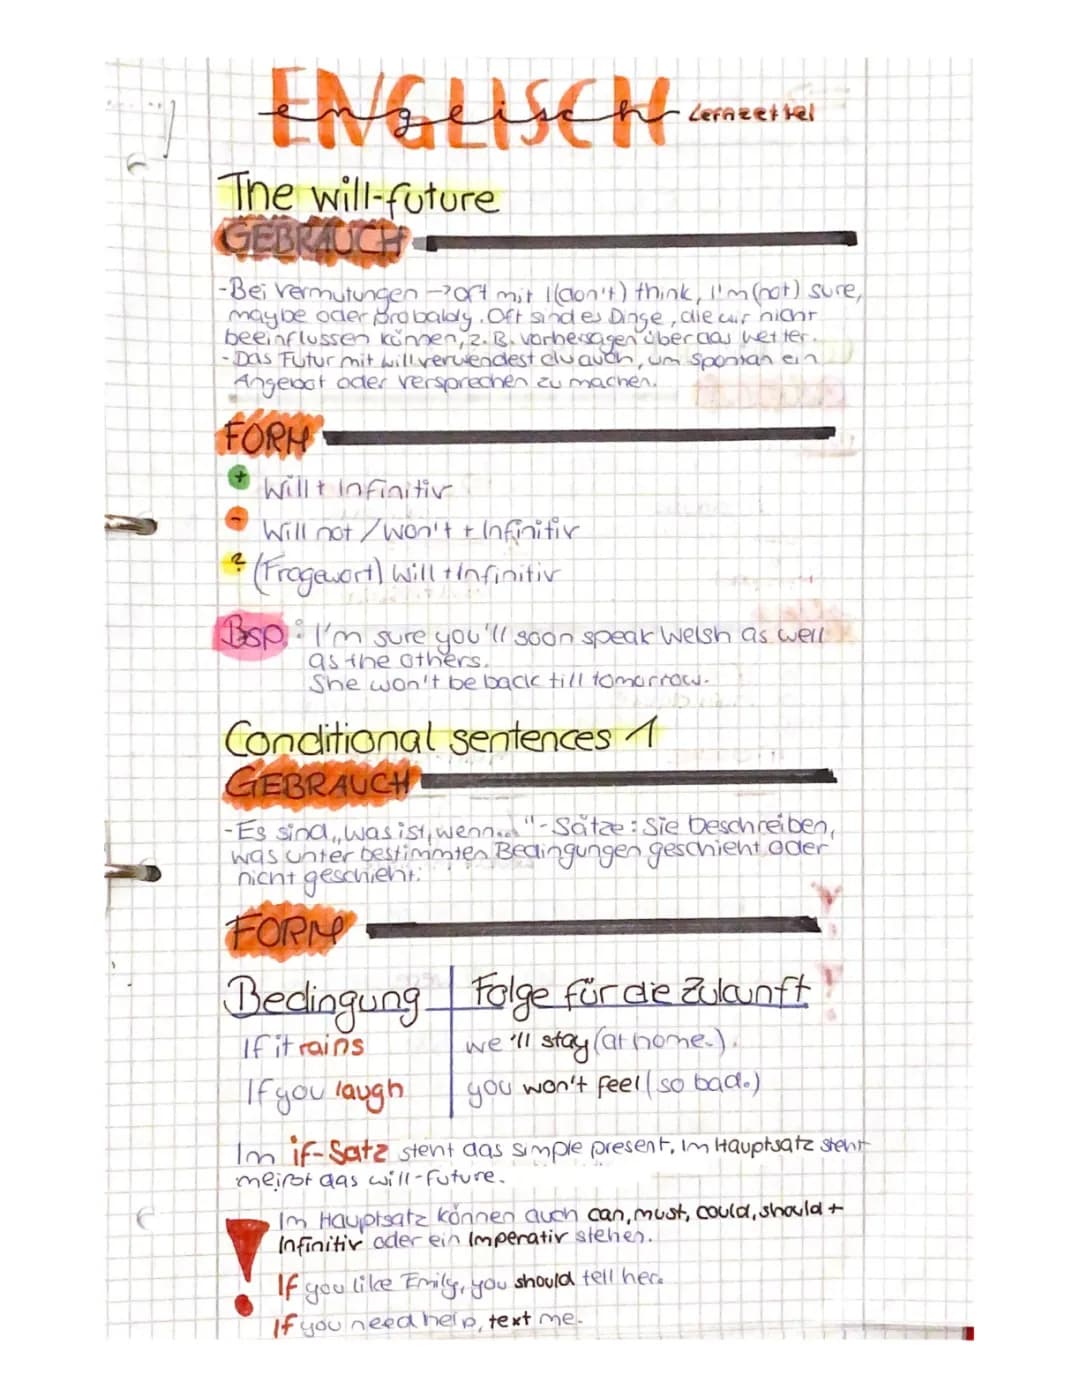 ENGLISCH
englisch Lernzettel
The will-future
GEBRAUCH
-Bei Vermutungen →oft mit I(don't) think, I'm (not) sure,
maybe oder probably. Oft sind es Dinge, die wir nicht
beeinflussen können, z. B. vorhersagen über das wetter.
-Das Futur mit will verwendest du auch, um spontan ein
Angebot oder versprechen zu machen.
FORM
+ Will + Infinitiv
- Will not / won't + Infinitiv
? (Fragewort) Will + Infinitiv
Bsp.: I'm sure you'll soon speak Welsh as well
as the others.
She won't be back till tomorrow.
Conditional sentences 1
GEBRAUCH
-Es sind „was ist, wenn..."-Sätze: Sie beschreiben,
was unter bestimmten Bedingungen geschieht oder
nicht geschieht.
FORM
Bedingung Folge für die Zukunft
If it rains we'll stay (at home.).
If you laugh you won't feel (so bad.)
Im if-Satz steht das simple present, im Hauptsatz steht
meist das will-future.
! Im Hauptsatz können auch can, must, could, should +
Infinitiv oder ein Imperativ stehen.
If you like Emily, you should tell her.
If you need help, text me.